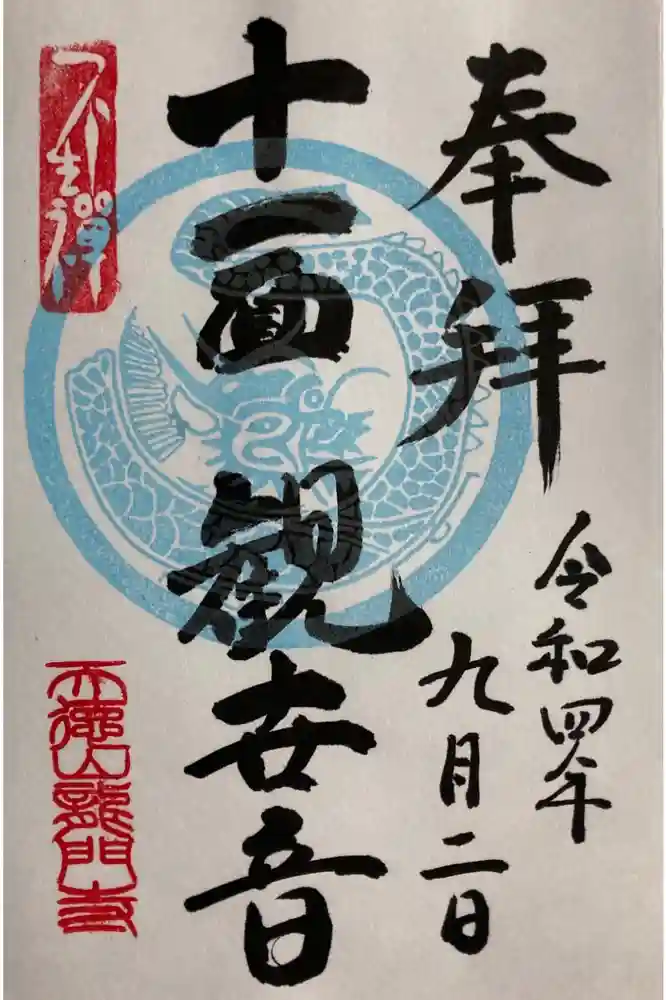 奉拝
令和四年
九月二日
十一面観世音
不生禪
天徳山龍門寺